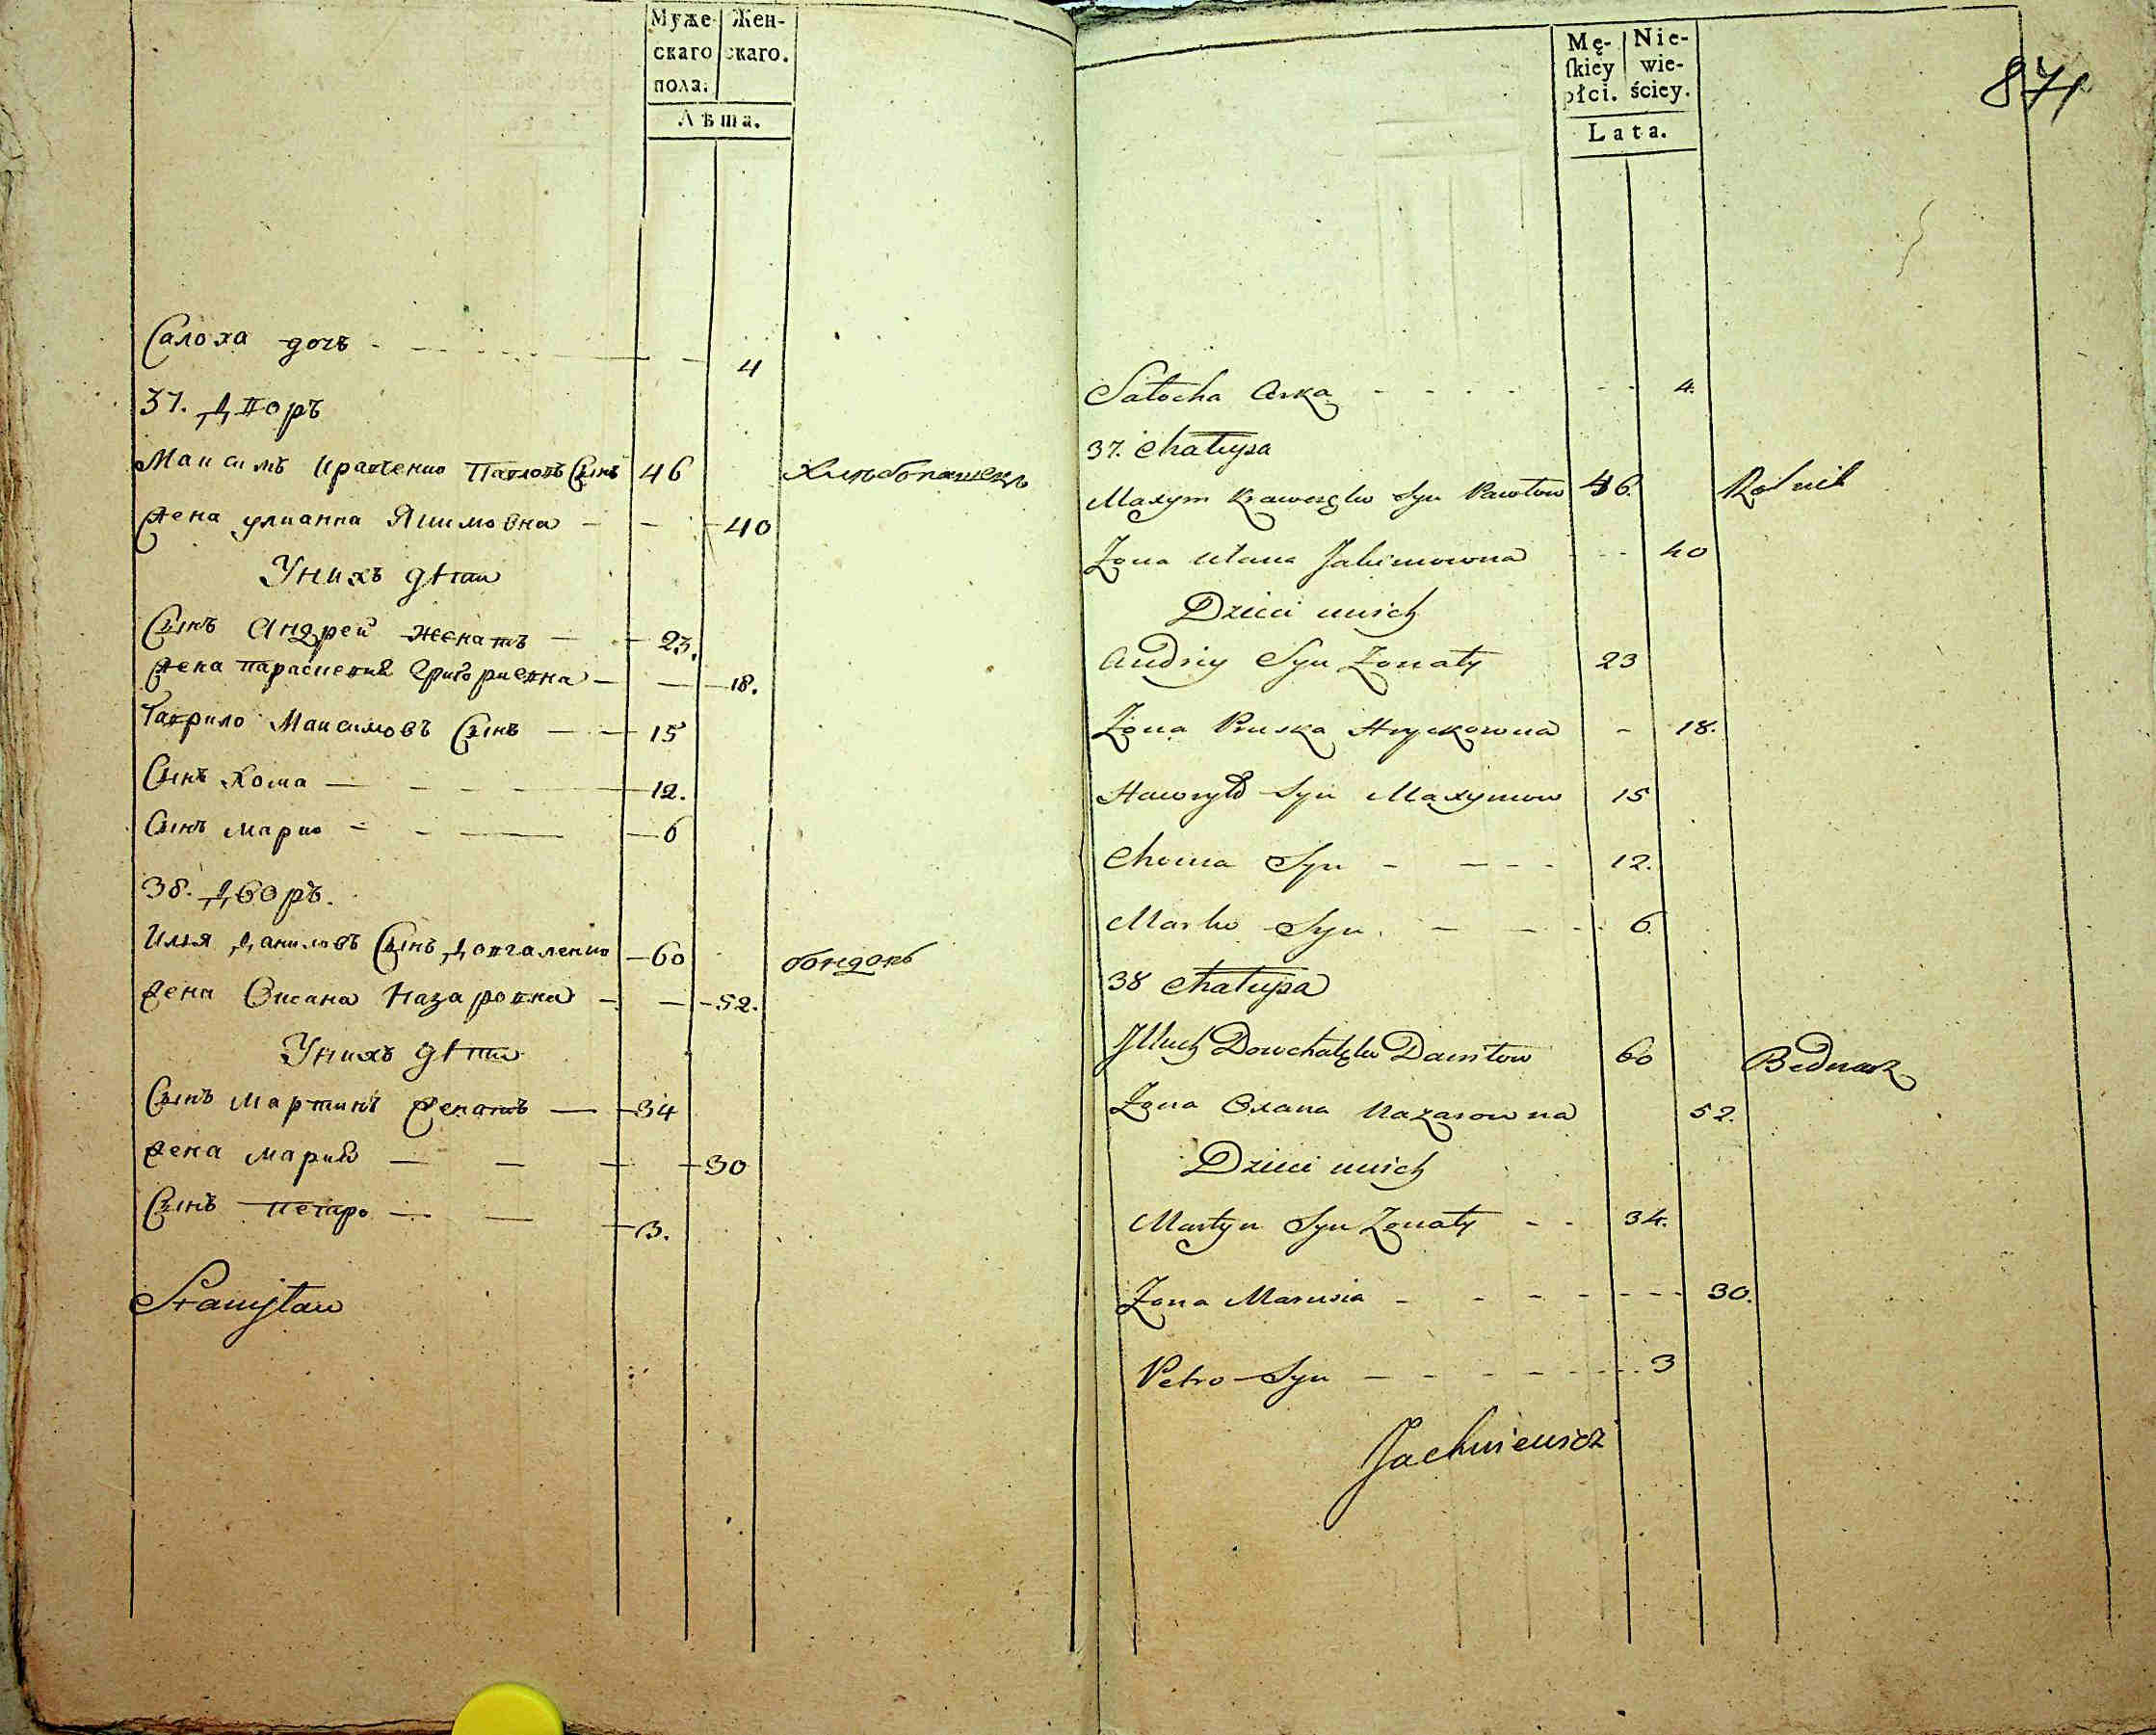 Муже- Жен-
скаго скаго.
пола.
Лѣта.
Салоха дочь - 4
37. Дворъ
Максимъ Кравченко Павловъ Сынъ 46 Хлѣбопашецъ
Жена Улианна Якимовна - 40
У нихъ дѣти
Сынъ Андрей женатъ - 23.
Жена Параскевия Григориевна - 18.
Гаврило Максимовъ Сынъ - 15
Сынъ Хома - 12.
Сынъ Марко - 6
38. Дворъ.
Илия Даниловъ Сынъ Довгаленко 60 бондарь
Жена Оксана Назаровна - 52.
У нихъ дѣти
Сынъ Мартинъ Женатъ - 34
Жена Мария - 30
Сынъ Петро - 3.
Stanisław
Mę- Nie-
skiey wie-
płci. ściey.
Lata.
871
Sałocha Curka - 4.
37. Chałupa
Maxym Krawczęko Syn Pawłow 46. Rolnik
Zona Ulana Jakimowna - 40
Dzieci unich
Andriy Syn Zonaty 23
Zona Pruska Hryckowna - 18.
Hawryło Syn Maxymow 15
Choma Syn - 12.
Marko Syn. - 6.
38 Chałupa
Illuch Dowchalęko Daniłow 60 Bednarz
Zona Oxana Nazarowna 52.
Dzieci unich
Martyn Syn Zonaty - 34.
Zona Marusia - 30.
Petro Syn - 3
Jachniewicz